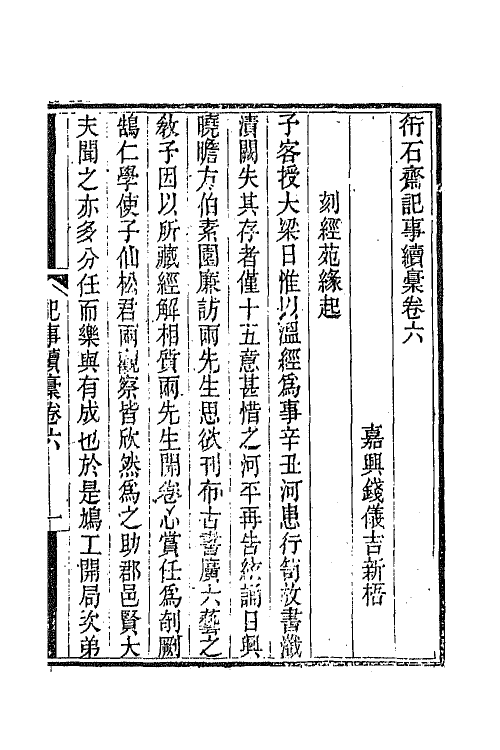 衎石齋記事續稾卷六
嘉興錢儀吉新梧
刻經苑緣起
子客授大梁日惟以溫經爲事辛丑河患行笥故書瀸
漬闕失其存者僅十五意甚惜之河平再告絃誦日興
曉瞻方伯素園廉訪兩先生思欲刊布古書廣六藝之
敎子因以所藏經解相質兩先生開卷心賞任爲剞劂
鵠仁學使子仙松君兩觀察皆欣然爲之助郡邑賢大
夫聞之亦多分任而樂與有成也於是鳩工開局次弟
記事續稾卷六 一